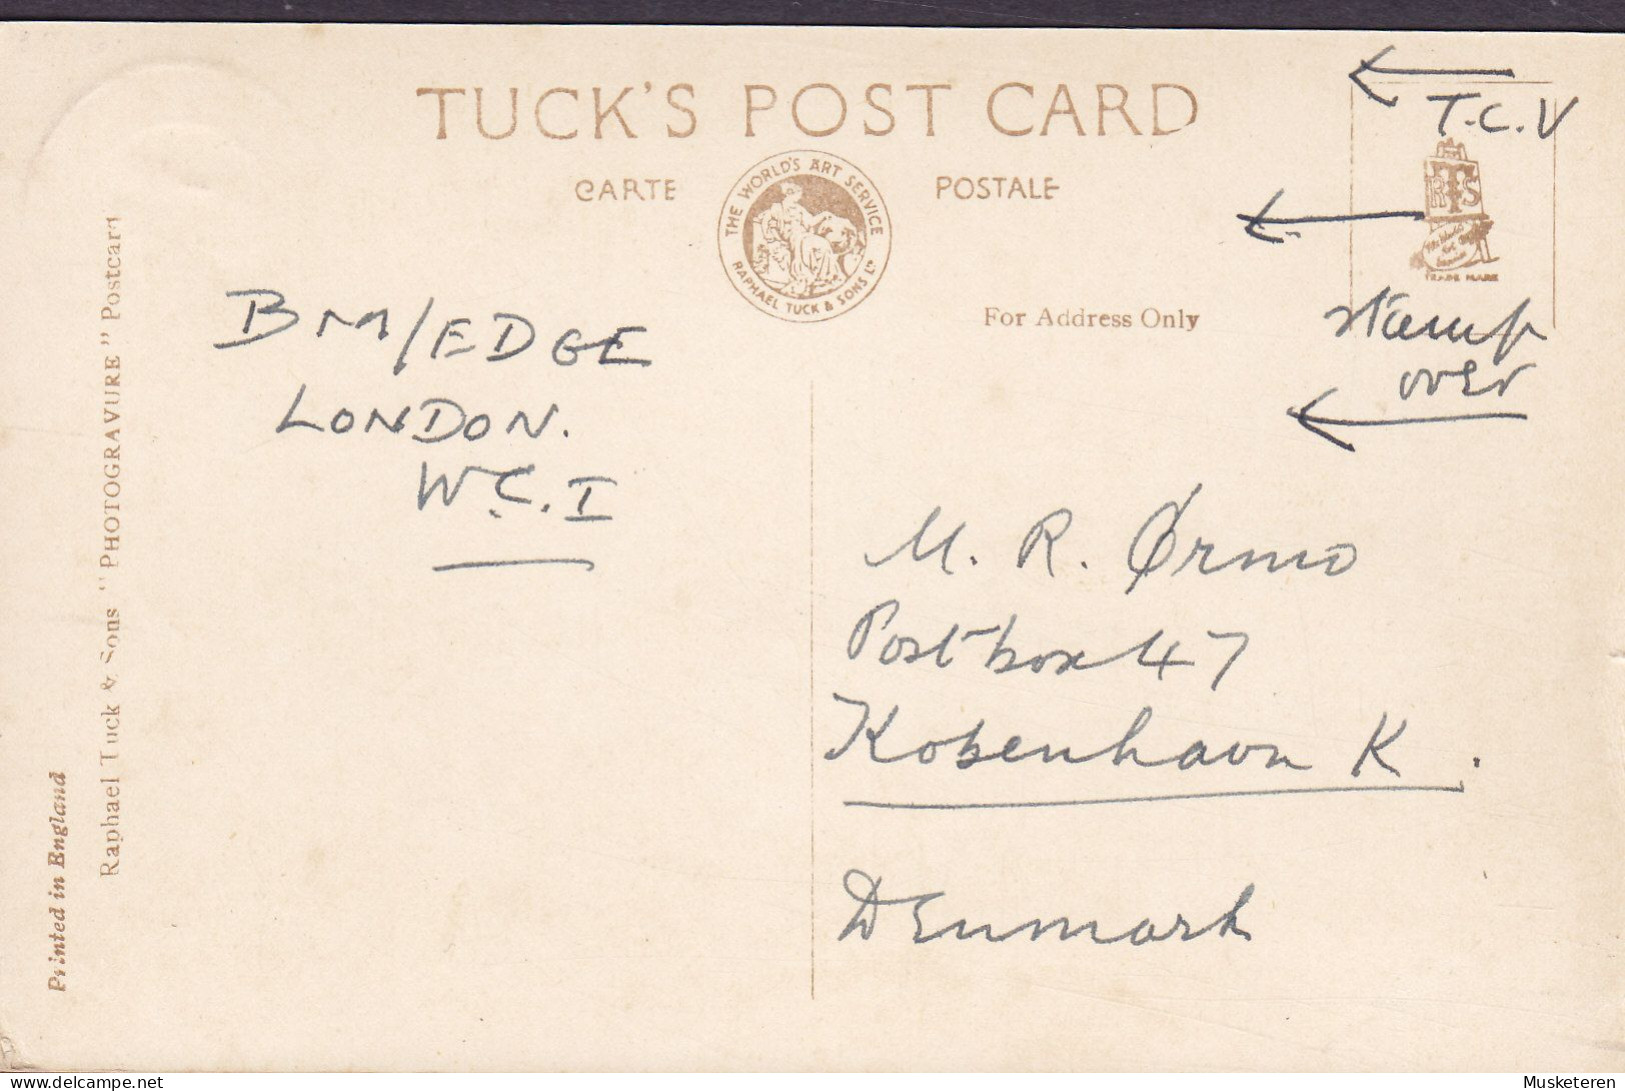 TUCK'S POST CARD
CARTE POSTALE
THE WORLD'S ART SERVICE
RAPHAEL TUCK & SONS LTD
For Address Only
T.C.V
RTS
TRADE MARK
stamp
over
BM/EDGE
LONDON.
W.C.I
M. R. Ørmo
Postbox 47
Kobenhavn K.
Denmark
Raphael Tuck & Sons "PHOTOGRAVURE" Postcard
Printed in England
Delcampe.net
Musketeren